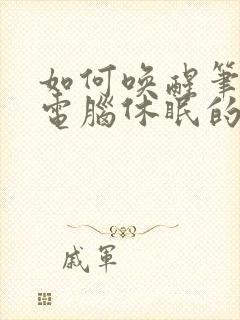 如何喚醒筆
電腦休眠的
戚軍